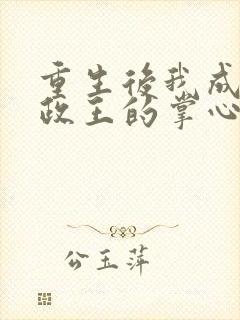 重生後我成
政王的掌心
公玉萍